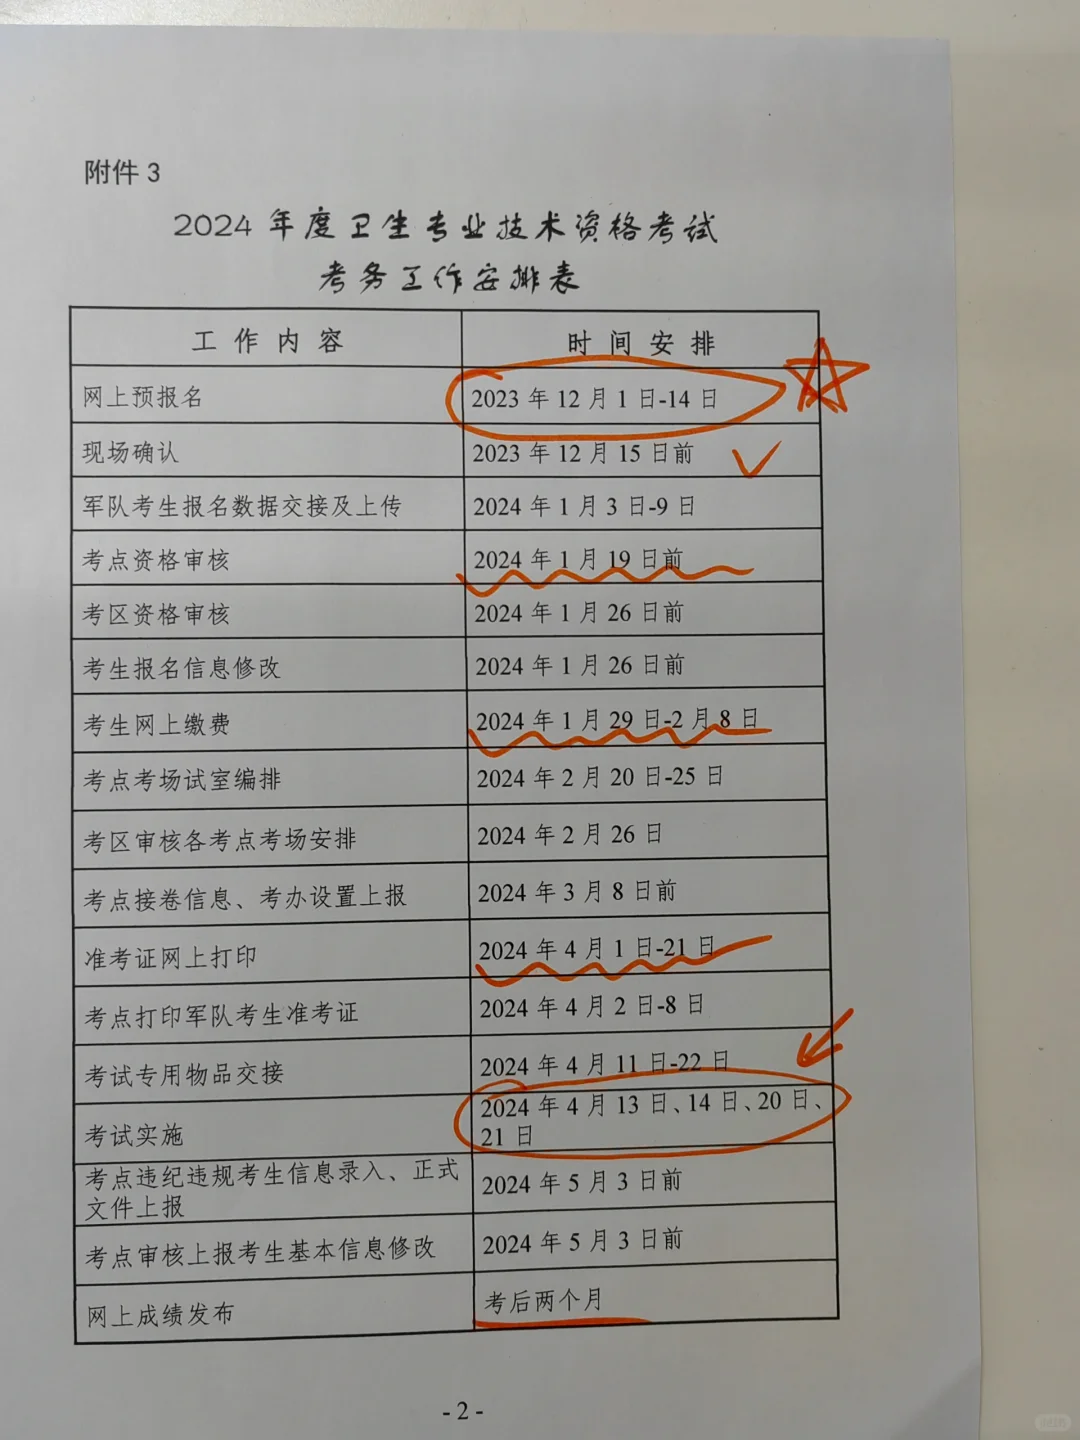 附件 3
2024 年度卫生专业技术资格考试
考务工作安排表
工作内容 时间安排
网上预报名 2023 年 12 月 1 日-14 日
现场确认 2023 年 12 月 15 日前
军队考生报名数据交接及上传 2024 年 1 月 3 日-9 日
考点资格审核 2024 年 1 月 19 日前
考区资格审核 2024 年 1 月 26 日前
考生报名信息修改 2024 年 1 月 26 日前
考生网上缴费 2024 年 1 月 29 日-2 月 8 日
考点考场试室编排 2024 年 2 月 20 日-25 日
考区审核各考点考场安排 2024 年 2 月 26 日
考点接卷信息、考办设置上报 2024 年 3 月 8 日前
准考证网上打印 2024 年 4 月 1 日-21 日
考点打印军队考生准考证 2024 年 4 月 2 日-8 日
考试专用物品交接 2024 年 4 月 11 日-22 日
考试实施 2024 年 4 月 13 日、14 日、20 日、
21 日
考点违纪违规考生信息录入、正式
文件上报 2024 年 5 月 3 日前
考点审核上报考生基本信息修改 2024 年 5 月 3 日前
网上成绩发布 考后两个月
- 2 -